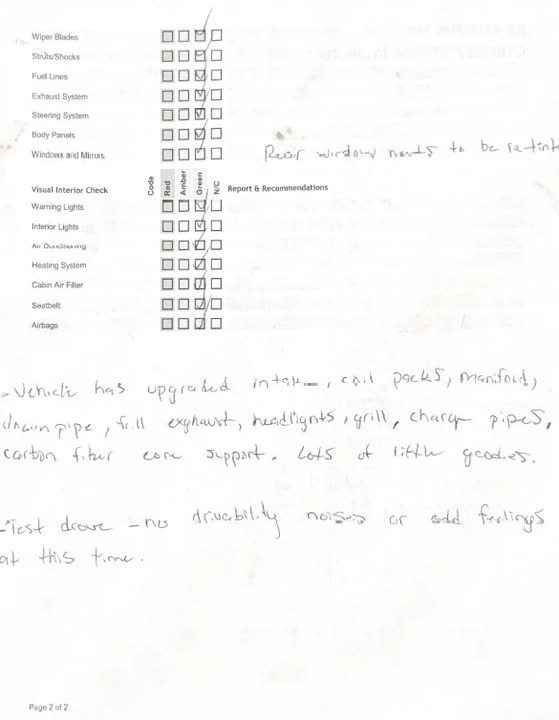 Wiper Blades
Struts/Shocks
Fuel Lines
Exhaust System
Steering System
Body Panels
Windows and Mirrors Rear window needs to be retint
Visual Interior Check Code Red Amber Green N/C Report & Recommendations
Warning Lights
Interior Lights
Air Conditioning
Heating System
Cabin Air Filter
Seatbelt
Airbags
- Vehicle has upgraded intake, coil packs, manifold,
downpipe, full exghaust, headlights, grill, charge pipes,
carbon fiber core support. Lots of little goodies.
- Test drove - no drivability noises or odd feelings
at this time.
Page 2 of 2